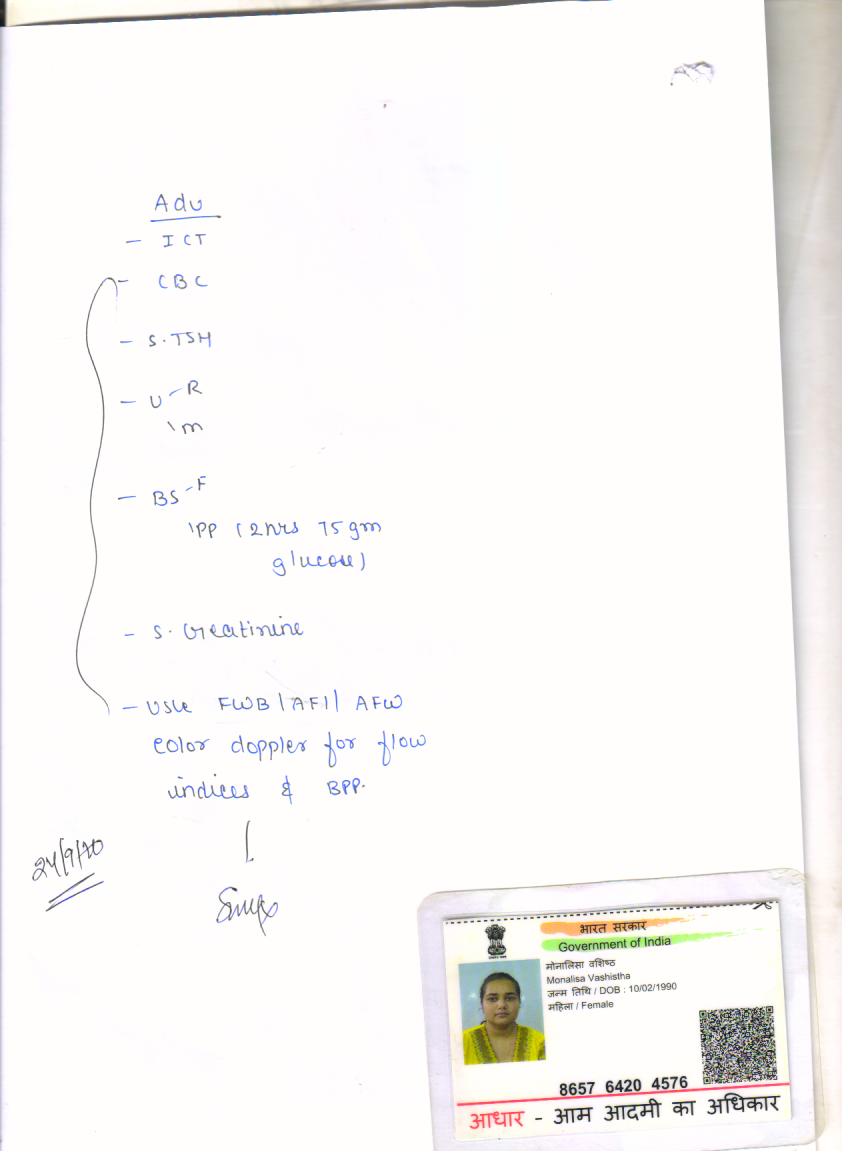 Adv
- ICT
- CBC
- S.TSH
- U - R
\ m
- BS - F
\ PP (2hrs 75gm
glucose)
- S. Creatinine
- USG FWB | AFI | AFW
color doppler for flow
indices & BPP.
24/9/20
भारत सरकार
Government of India
मोनालिसा वशिष्ठ
Monalisa Vashistha
जन्म तिथि / DOB : 10/02/1990
महिला / Female
8657 6420 4576
आधार - आम आदमी का अधिकार